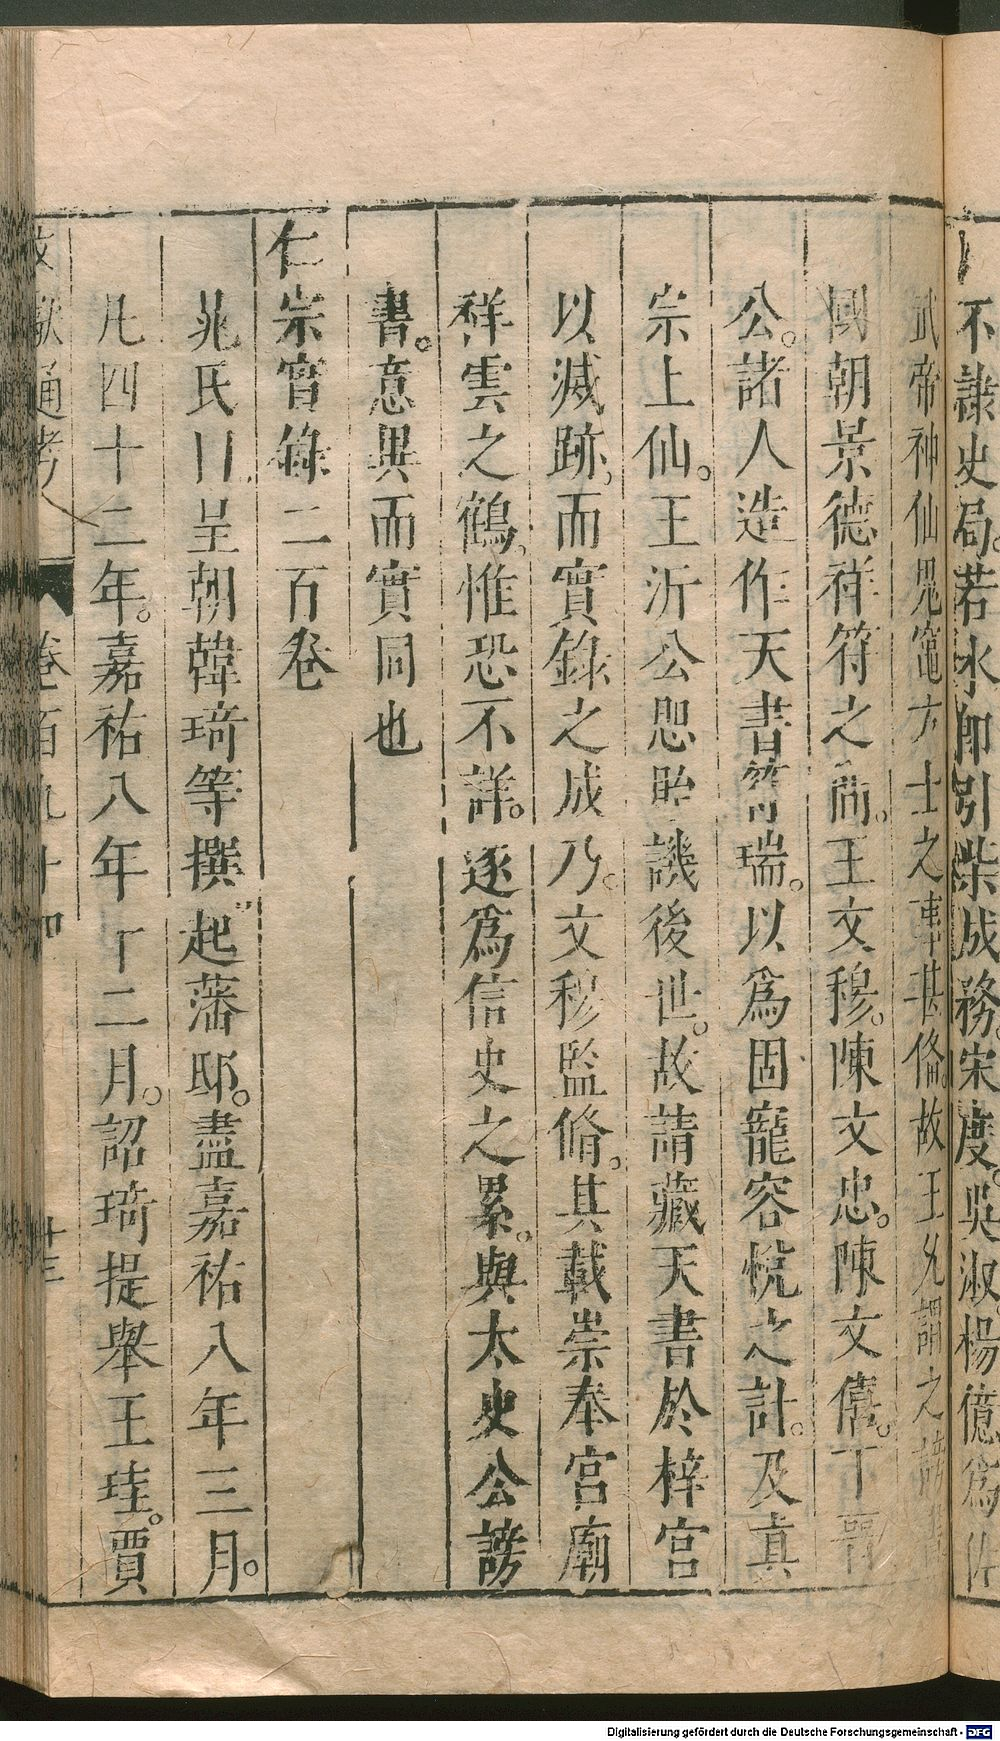 不隷史局若水卽引柴成務宋度吳淑楊億爲佐
武帝神仙鬼竈方士之事甚備故王允謂之謗
國朝景德祥符之間王文穆陳文忠陳文僖丁晋
公諸人造作天書符瑞以爲固寵容悅之計及真
宗上仙王沂公思貽譏後世故請藏天書於梓宮
以滅跡而實錄之成乃文穆監脩其載崇奉宮廟
祥雲之鶴惟恐不詳遂爲信史之累與太史公謗
書意異而實同也
仁宗實錄二百卷
晁氏曰皇朝韓琦等撰起藩邸盡嘉祐八年三月
凡四十二年嘉祐八年十二月詔琦提舉王珪賈
文獻通考 卷百九十四 十三
Digitalisierung gefördert durch die Deutsche Forschungsgemeinschaft - DFG